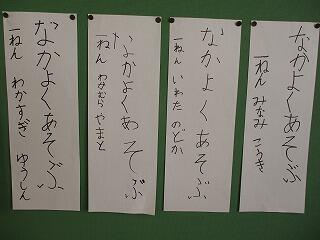 なかよくあそぶ
一ねん みなみ こうき
なかよくあそぶ
一ねん いわた のどか
なかよくあそぶ
一ねん わかむら やまと
なかよくあそぶ
一ねん わかすぎ ゆうしん